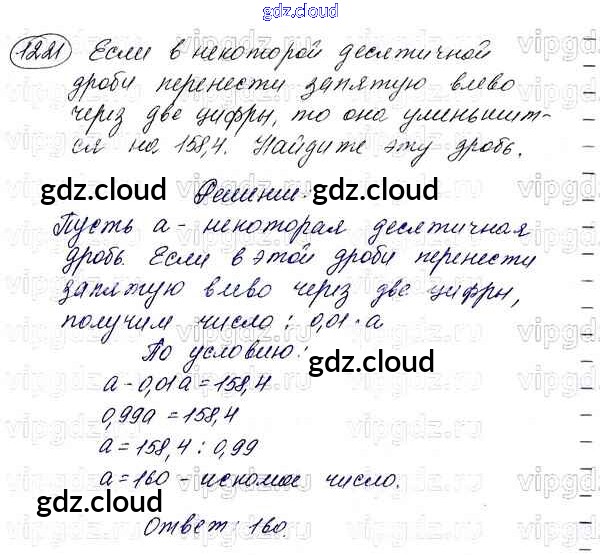 gdz.cloud
1221 Если в некоторой десятичной
дроби перенести запятую влево
через две цифры, то она уменьшит-
ся на 158,4. Найдите эту дробь.
gdz.cloud Решение. gdz.cloud
Пусть a - некоторая десятичная
дробь. Если в этой дроби перенести
запятую влево через две цифры,
получим число: 0,01·a
По условию:
gdz.cloud
a - 0,01a = 158,4
0,99a = 158,4
a = 158,4 : 0,99
a = 160 - искомое число.
gdz.cloud gdz.cloud
Ответ: 160.